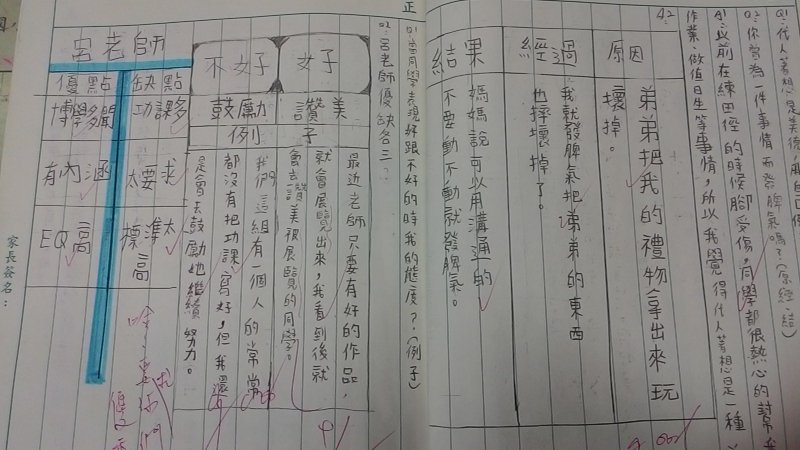 Q1:代人著想是美德,
Q2:你曾為一件事情而發脾氣嗎?(原.經.結)
A1:以前在練田徑的時候腳受傷,同學都很熱心的幫我
作業、做值日生等事情,所以我覺得代人著想是一種
A2:
原因
弟弟把我的禮物拿出來玩
壞掉。
經過
我就發脾氣把弟弟的東西
也摔壞掉了。
結果
媽媽說可以用溝通的
不要動不動就發脾氣。
正
Q1:當同學表現好跟不好的時我的態度?(例子)
Q2:呂老師優缺各三?
好子
不好子
讚美
鼓勵
例子
最近老師只要有好的作品,
就會展覽出來,我看到後就
會去讚美被展覽的同學。
我們這組有一個人的常常
都沒有把功課寫好,但我還
是會去鼓勵她繼續努力。
呂老師
缺點
優點
功課多
博學多聞
太要求
有內涵
標準太高
EQ高
家長簽名: